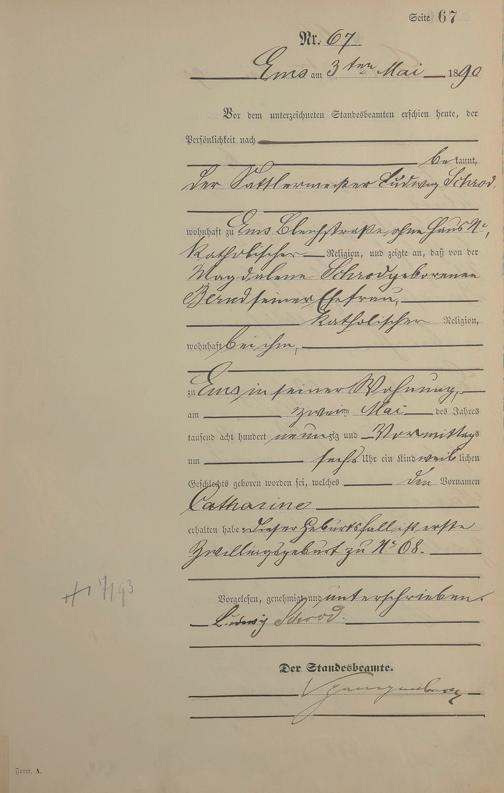 Seite 67
Nr. 67
Ems am 3ten Mai 1890
Vor dem unterzeichneten Standesbeamten erschien heute, der
Persönlichkeit nach
bekannt,
der Sattlermeister Ludwig Schrod
wohnhaft zu Ems ohne Haus No,
katholischer Religion, und zeigte an, daß von der
Magdalene Schrod geborenen
Bernd seiner Ehefrau,
katholischer Religion,
wohnhaft bei ihm,
zu Ems in seiner Wohnung,
am zweiten Mai des Jahres
tausend acht hundert neunzig und Vormittags
um sechs Uhr ein Kind weiblichen
Geschlechts geboren worden sei, welches den Vornamen
Catharine
erhalten habe. Dieser Geburtsfall ist erste
Zwillingsgeburt zu No 68.
Vorgelesen, genehmigt und unterschrieben
Ludwig Schrod.
Der Standesbeamte.
Form. A.